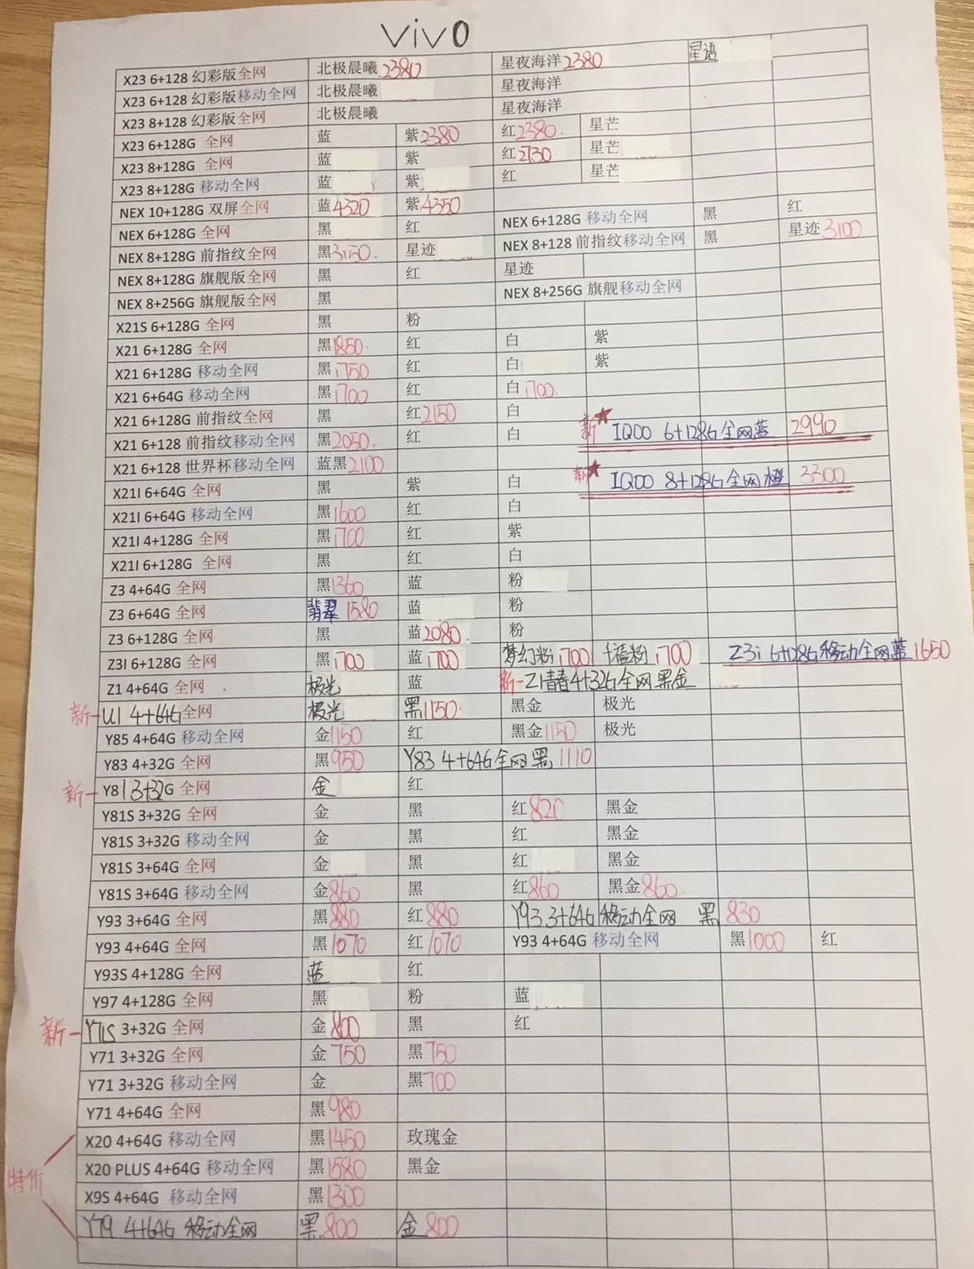 vivo
X23 6+128 幻彩版全网 北极晨曦2380 星夜海洋2380 星语
X23 6+128 幻彩版移动全网 北极晨曦 星夜海洋
X23 8+128 幻彩版全网 北极晨曦 星夜海洋
X23 6+128G 全网 蓝 紫2380 红2380. 星芒
X23 8+128G 全网 蓝 紫 红2730 星芒
X23 8+128G 移动全网 蓝 紫 红 星芒
NEX 10+128G 双屏全网 蓝4320 紫4350
NEX 6+128G 全网 黑 红 NEX 6+128G 移动全网 黑 红
NEX 8+128G 前指纹全网 黑3150. 星迹 NEX 8+128 前指纹移动全网 黑 星迹3100
NEX 8+128G 旗舰版全网 黑 红 星迹
NEX 8+256G 旗舰版全网 黑 NEX 8+256G 旗舰移动全网
X21S 6+128G 全网 黑 粉
X21 6+128G 全网 黑1850. 红 白 紫
X21 6+128G 移动全网 黑1750 红 白 紫
X21 6+64G 移动全网 黑1700 红 白1700.
X21 6+128G 前指纹全网 黑 红2150 白 新★ IQOO 6+128G全网蓝 2990
X21 6+128 前指纹移动全网 黑2050. 红 白
X21 6+128 世界杯移动全网 蓝黑2100 新★ IQOO 8+128G全网橙 3300
X21I 6+64G 全网 黑 紫 白
X21I 6+64G 移动全网 黑1600 红 白
X21I 4+128G 全网 黑1700 红 紫
X21I 6+128G 全网 黑 红 白
Z3 4+64G 全网 黑1360 蓝 粉
Z3 6+64G 全网 翡翠1580 蓝 粉
Z3 6+128G 全网 黑 蓝2080. 粉
Z3I 6+128G 全网 黑1700 蓝1700 梦幻粉1700 粉1700 Z3i 6+128G移动全网蓝1650
Z1 4+64G 全网 极光 蓝 新-Z1青春4+32G全网黑金
新-U1 4+64G全网 极光 黑1150. 黑金 极光
Y85 4+64G 移动全网 金1150 红 黑金1150 极光
Y83 4+32G 全网 黑950 Y83 4+64G全网黑1110
新-Y81 3+32G 全网 金 红
Y81S 3+32G 全网 金 黑 红820 黑金
Y81S 3+32G 移动全网 金 黑 红 黑金
Y81S 3+64G 全网 金 黑 红 黑金
Y81S 3+64G 移动全网 金860 黑 红860 黑金860.
Y93 3+64G 全网 黑880 红880 Y93 3+64G移动全网 黑830
Y93 4+64G 全网 黑1070 红1070 Y93 4+64G 移动全网 黑1000 红
Y93S 4+128G 全网 蓝 红
Y97 4+128G 全网 黑 粉 蓝
新-Y71S 3+32G 全网 金800 黑 红
Y71 3+32G 全网 金750 黑750
Y71 3+32G 移动全网 金 黑700
Y71 4+64G 全网 黑980
X20 4+64G 移动全网 黑1450 玫瑰金
特价 X20 PLUS 4+64G 移动全网 黑1580 黑金
X9S 4+64G 移动全网 黑1300
Y79 4+64G 移动全网 黑800 金800